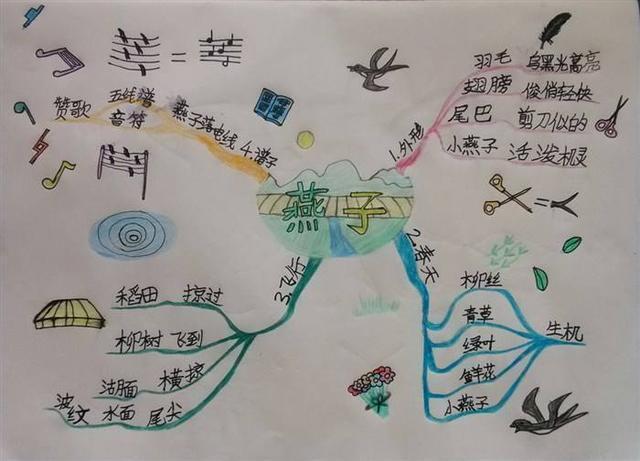 燕子
1.外形
羽毛 乌黑光亮
翅膀 俊俏轻快
尾巴 剪刀似的
小燕子 活泼机灵
2.春天
柳丝
青草
绿叶
鲜花
小燕子
生机
3.飞行
稻田 掠过
柳树 飞到
沽面 横掠
波纹 水面 尾尖
4.谱子
燕子落电线
五线谱
音符
赞歌